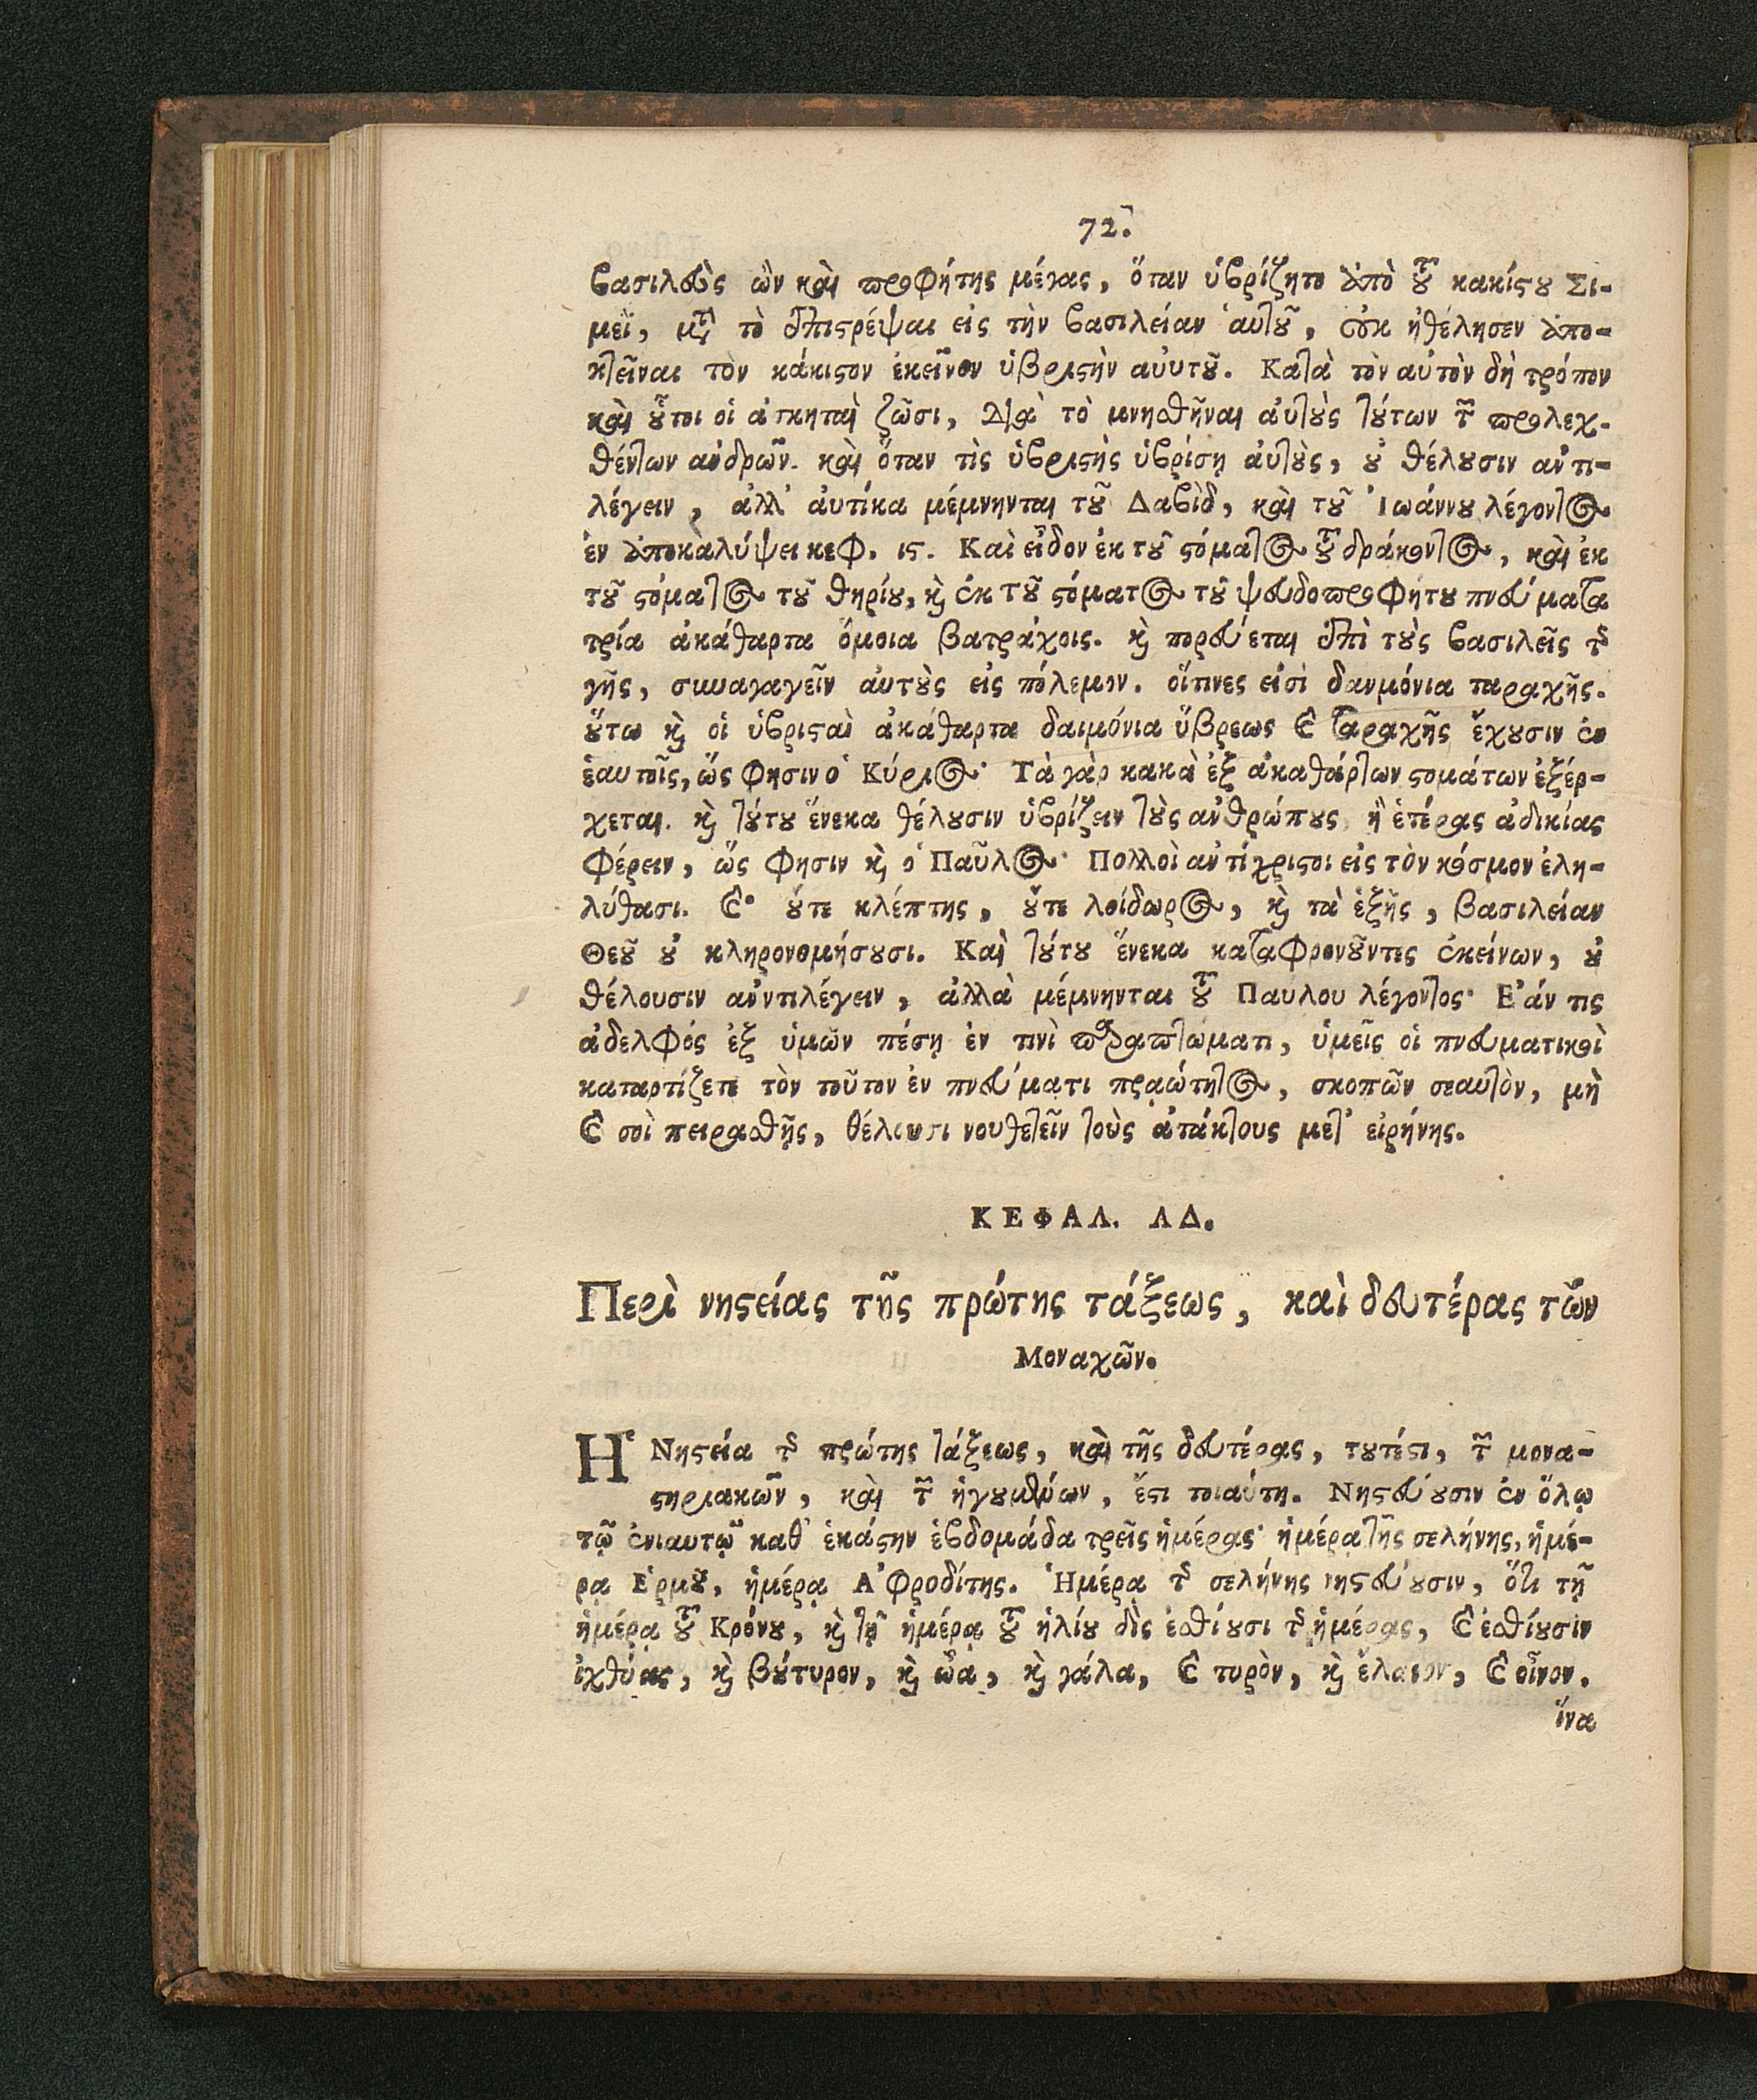 72.
βασιλεὺς ὢν καὶ προφήτης μέγας, ὅταν ὑβρίζητο ἀπὸ τοῦ κακίςου Σι-
μεῒ, μετὰ τὸ ἐπιςρέψαι εἰς τὴν βασιλείαν ἁυτοῦ, οὐκ ἠθέλησεν ἀπο-
κτεῖναι τὸν κάκιςον ἐκεῖνον ὑβριςὴν αὐυτοῦ. Κατὰ τὸν αὐτὸν δὴ τρόπον
καὶ οὗτοι οἱ ἀσκηταὶ ζῶσι, διὰ τὸ μνησθῆναι ἀυτοὺς τούτων τῶν προλεχ-
θέντων ἀνδρῶν. καὶ ὅταν τὶς ὑβριςὴς ὑβρίσῃ ἀυτοὺς, οὐ θέλουσιν ἀντι-
λέγειν, ἀλλ' ἀυτίκα μέμνηνται τοῦ Δαβὶδ, καὶ τοῦ Ἰωάννου λέγοντος
ἐν ἀποκὰλύψει κεφ. ις. Καὶ εἶδον ἐκ τοῦ ςόματος τοῦ δράκοντος, καὶ ἐκ
τοῦ ςόματος τοῦ θηρίου, καὶ ἐκ τοῦ ςόματος τοῦ ψευδοπροφήτου πνεύματα
τρία ἀκάθαρτα ὅμοια βατράχοις. καὶ πορεύεται ἐπὶ τοὺς βασιλεῖς τῆς
γῆς, συναγαγεῖν ἀυτοὺς εἰς πόλεμον. οἵτινες εἰσὶ δανμόνια ταραχῆς.
οὕτω καὶ οἱ ὑβριςαὶ ἀκάθαρτα δαιμόνια ὕβρεως καὶ ταραχῆς ἔχουσιν ἐν
ἑαυτοῖς, ὥς φησιν ὁ Κύριος· Τὰ γὰρ κακὰ ἐξ ἀκαθάρτων ςομάτων ἐξέρ-
χεται. καὶ τούτου ἕνεκα θέλουσιν ὑβρίζειν τοὺς ἀνθρώπους ἢ ἑτέρας ἀδικίας
φέρειν, ὥς φησιν καὶ ὁ Παῦλος· Πολλοὶ ἀντίχριςοι εἰς τὸν κόσμον ἐλη-
λύθασι. καὶ· οὔτε κλέπτης, οὔτε λοίδωρος, καὶ τὰ ἑξῆς, βασιλείαν
Θεοῦ οὐ κληρονομήσουσι. Καὶ τούτου ἕνεκα καταφρονοῦντες ἐκείνων, οὐ
θέλουσιν ἀὐντιλέγειν, ἀλλὰ μέμνηνται τοῦ Παυλου λέγοντος· Ἐάν τις
ἀδελφός ἐξ ὑμῶν πέσῃ ἐν τινὶ παραπτώματι, ὑμεῖς οἱ πνευματικοὶ
καταρτίζετε τὸν τοῦτον ἐν πνεύματι πρᾳώτητος, σκοπῶν σεαυτὸν, μὴ
καὶ σοὶ πειρασθῇς, θέλουσι νουθετεῖν τοὺς ἀτάκτους μετ' εἰρήνης.
ΚΕΦΑΛ. ΛΔ.
Περὶ νηςείας τῆς πρώτης τάξεως, καὶ δευτέρας τῶν
Μοναχῶν.
Ἡ Νηςεία τῆς πρώτης τάξεως, καὶ τῆς δευτέρας, τουτέςι, τῶν μονα-
ςηριακῶν, καὶ τῶν ἡγουμένων, ἔςι τοιαύτη. Νηςεύουσιν ἐν ὅλῳ
τῷ ἐνιαυτῷ καθ' ἑκάςην ἑβδομάδα τρεῖς ἡμέρας· ἡμέρᾳ τῆς σελήνης, ἡμέ-
ρᾳ Ἑρμοῦ, ἡμέρᾳ Ἀφροδίτης. Ἡμέρᾳ τῆς σελήνης νηςεύουσιν, ὅτι τῇ
ἡμέρᾳ τοῦ Κρόνου, καὶ τῇ ἡμέρᾳ τοῦ ἡλίου δὶς ἐσθίουσι τῆς ἡμέρας, καὶ ἐσθίουσιν
ἰχθύας, καὶ βούτυρον, καὶ ὠὰ, καὶ γάλα, καὶ τυρὸν, καὶ ἔλαιον, καὶ οἶνον.
ἵνα